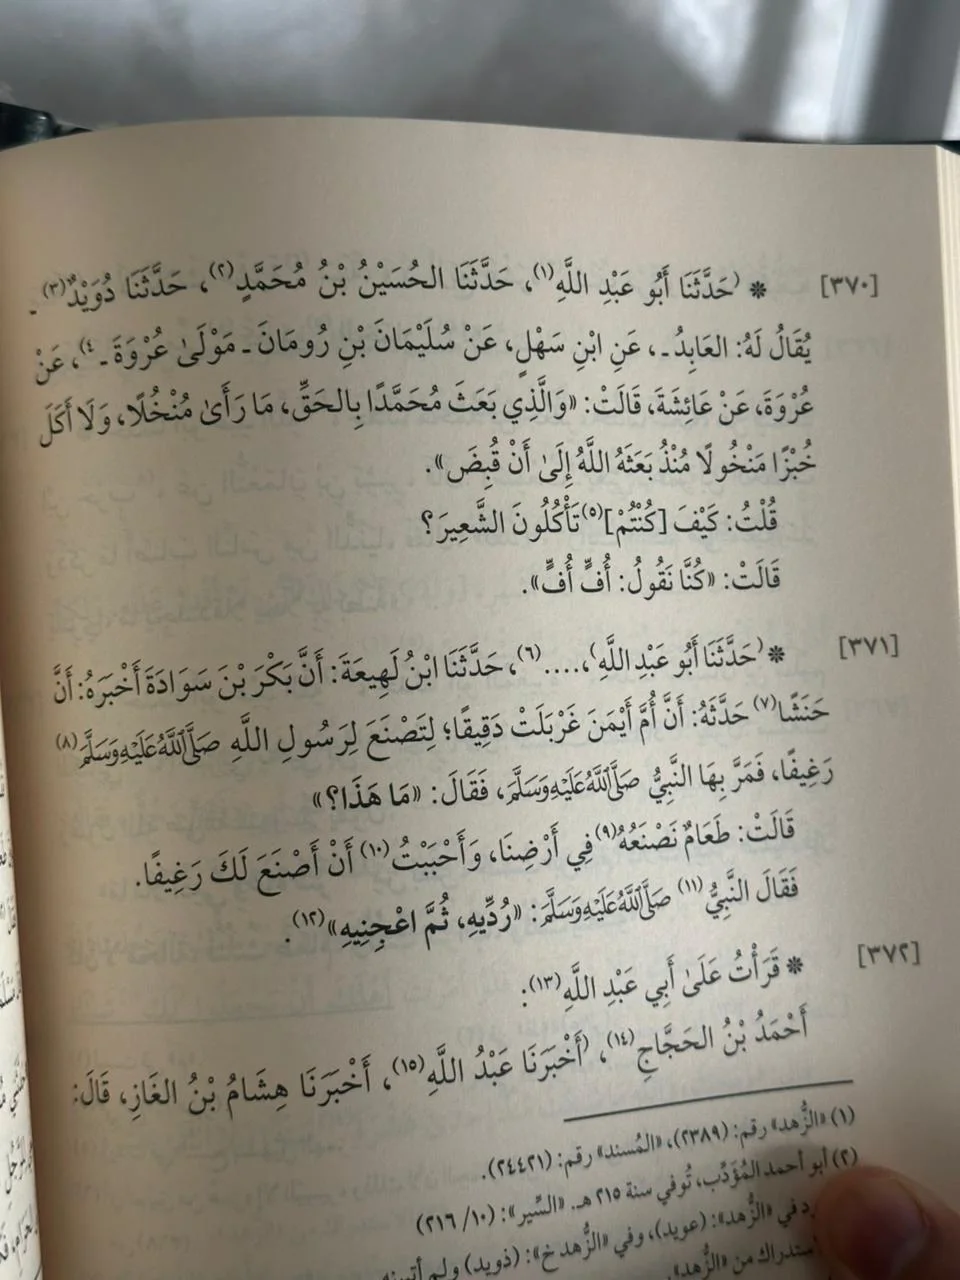 [٣٧٠] * (حَدَّثَنَا أَبُو عَبْدِ اللَّهِ(١)، حَدَّثَنَا الحُسَيْنُ بْنُ مُحَمَّدٍ(٢)، حَدَّثَنَا دُوَيْدٌ(٣) ـ
يُقَالُ لَهُ: العَابِدُ ـ، عَنِ ابْنِ سَهْلٍ، عَنْ سُلَيْمَانَ بْنِ رُومَانَ ـ مَوْلَىٰ عُرْوَةَ ـ(٤)، عَنْ
عُرْوَةَ، عَنْ عَائِشَةَ، قَالَتْ: «وَالَّذِي بَعَثَ مُحَمَّدًا بِالحَقِّ، مَا رَأَىٰ مُنْخُلًا، وَلَا أَكَلَ
خُبْزًا مَنْخُولًا مُنْذُ بَعَثَهُ اللَّهُ إِلَىٰ أَنْ قُبِضَ».
قُلْتُ: كَيْفَ [كُنْتُمْ](٥) تَأْكُلُونَ الشَّعِيرَ؟
قَالَتْ: «كُنَّا نَقُولُ: أُفٍّ أُفٍّ».
[٣٧١] * (حَدَّثَنَا أَبُو عَبْدِ اللَّهِ)، ....(٦)، حَدَّثَنَا ابْنُ لَهِيعَةَ: أَنَّ بَكْرَ بْنَ سَوَادَةَ أَخْبَرَهُ: أَنَّ
حَنَشًا(٧) حَدَّثَهُ: أَنَّ أُمَّ أَيْمَنَ غَرْبَلَتْ دَقِيقًا؛ لِتَصْنَعَ لِرَسُولِ اللَّهِ صَلَّى اللَّهُ عَلَيْهِ وَسَلَّمَ(٨)
رَغِيفًا، فَمَرَّ بِهَا النَّبِيُّ صَلَّى اللَّهُ عَلَيْهِ وَسَلَّمَ، فَقَالَ: «مَا هَذَا؟»
قَالَتْ: طَعَامٌ نَصْنَعُهُ(٩) فِي أَرْضِنَا، وَأَحْبَبْتُ(١٠) أَنْ أَصْنَعَ لَكَ رَغِيفًا.
فَقَالَ النَّبِيُّ(١١) صَلَّى اللَّهُ عَلَيْهِ وَسَلَّمَ: «رُدِّيهِ، ثُمَّ اعْجِنِيهِ»(١٢).
[٣٧٢] * قَرَأْتُ عَلَىٰ أَبِي عَبْدِ اللَّهِ(١٣):
أَحْمَدُ بْنُ الحَجَّاجِ(١٤)، (أَخْبَرَنَا عَبْدُ اللَّهِ(١٥)، أَخْبَرَنَا هِشَامُ بْنُ الغَازِ، قَالَ:
(١) «الزُّهد» رقم: (٢٣٨٩)، «المُسند» رقم: (٢٤٤٢١).
(٢) أبو أحمد المُؤَدِّب، تُوفي سنة ٢١٥ هـ. «السِّير»: (١٠/ ٢١٦)
في «الزُّهد»: (عويد)، وفي «الزُّهد خ»: (ذويد) ولم
من «الزُّهد».